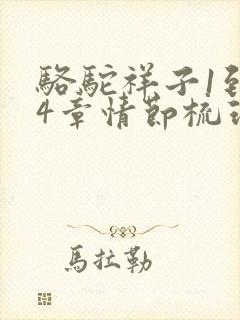 駱駝祥子1到
4章情節梳理
馬拉勒